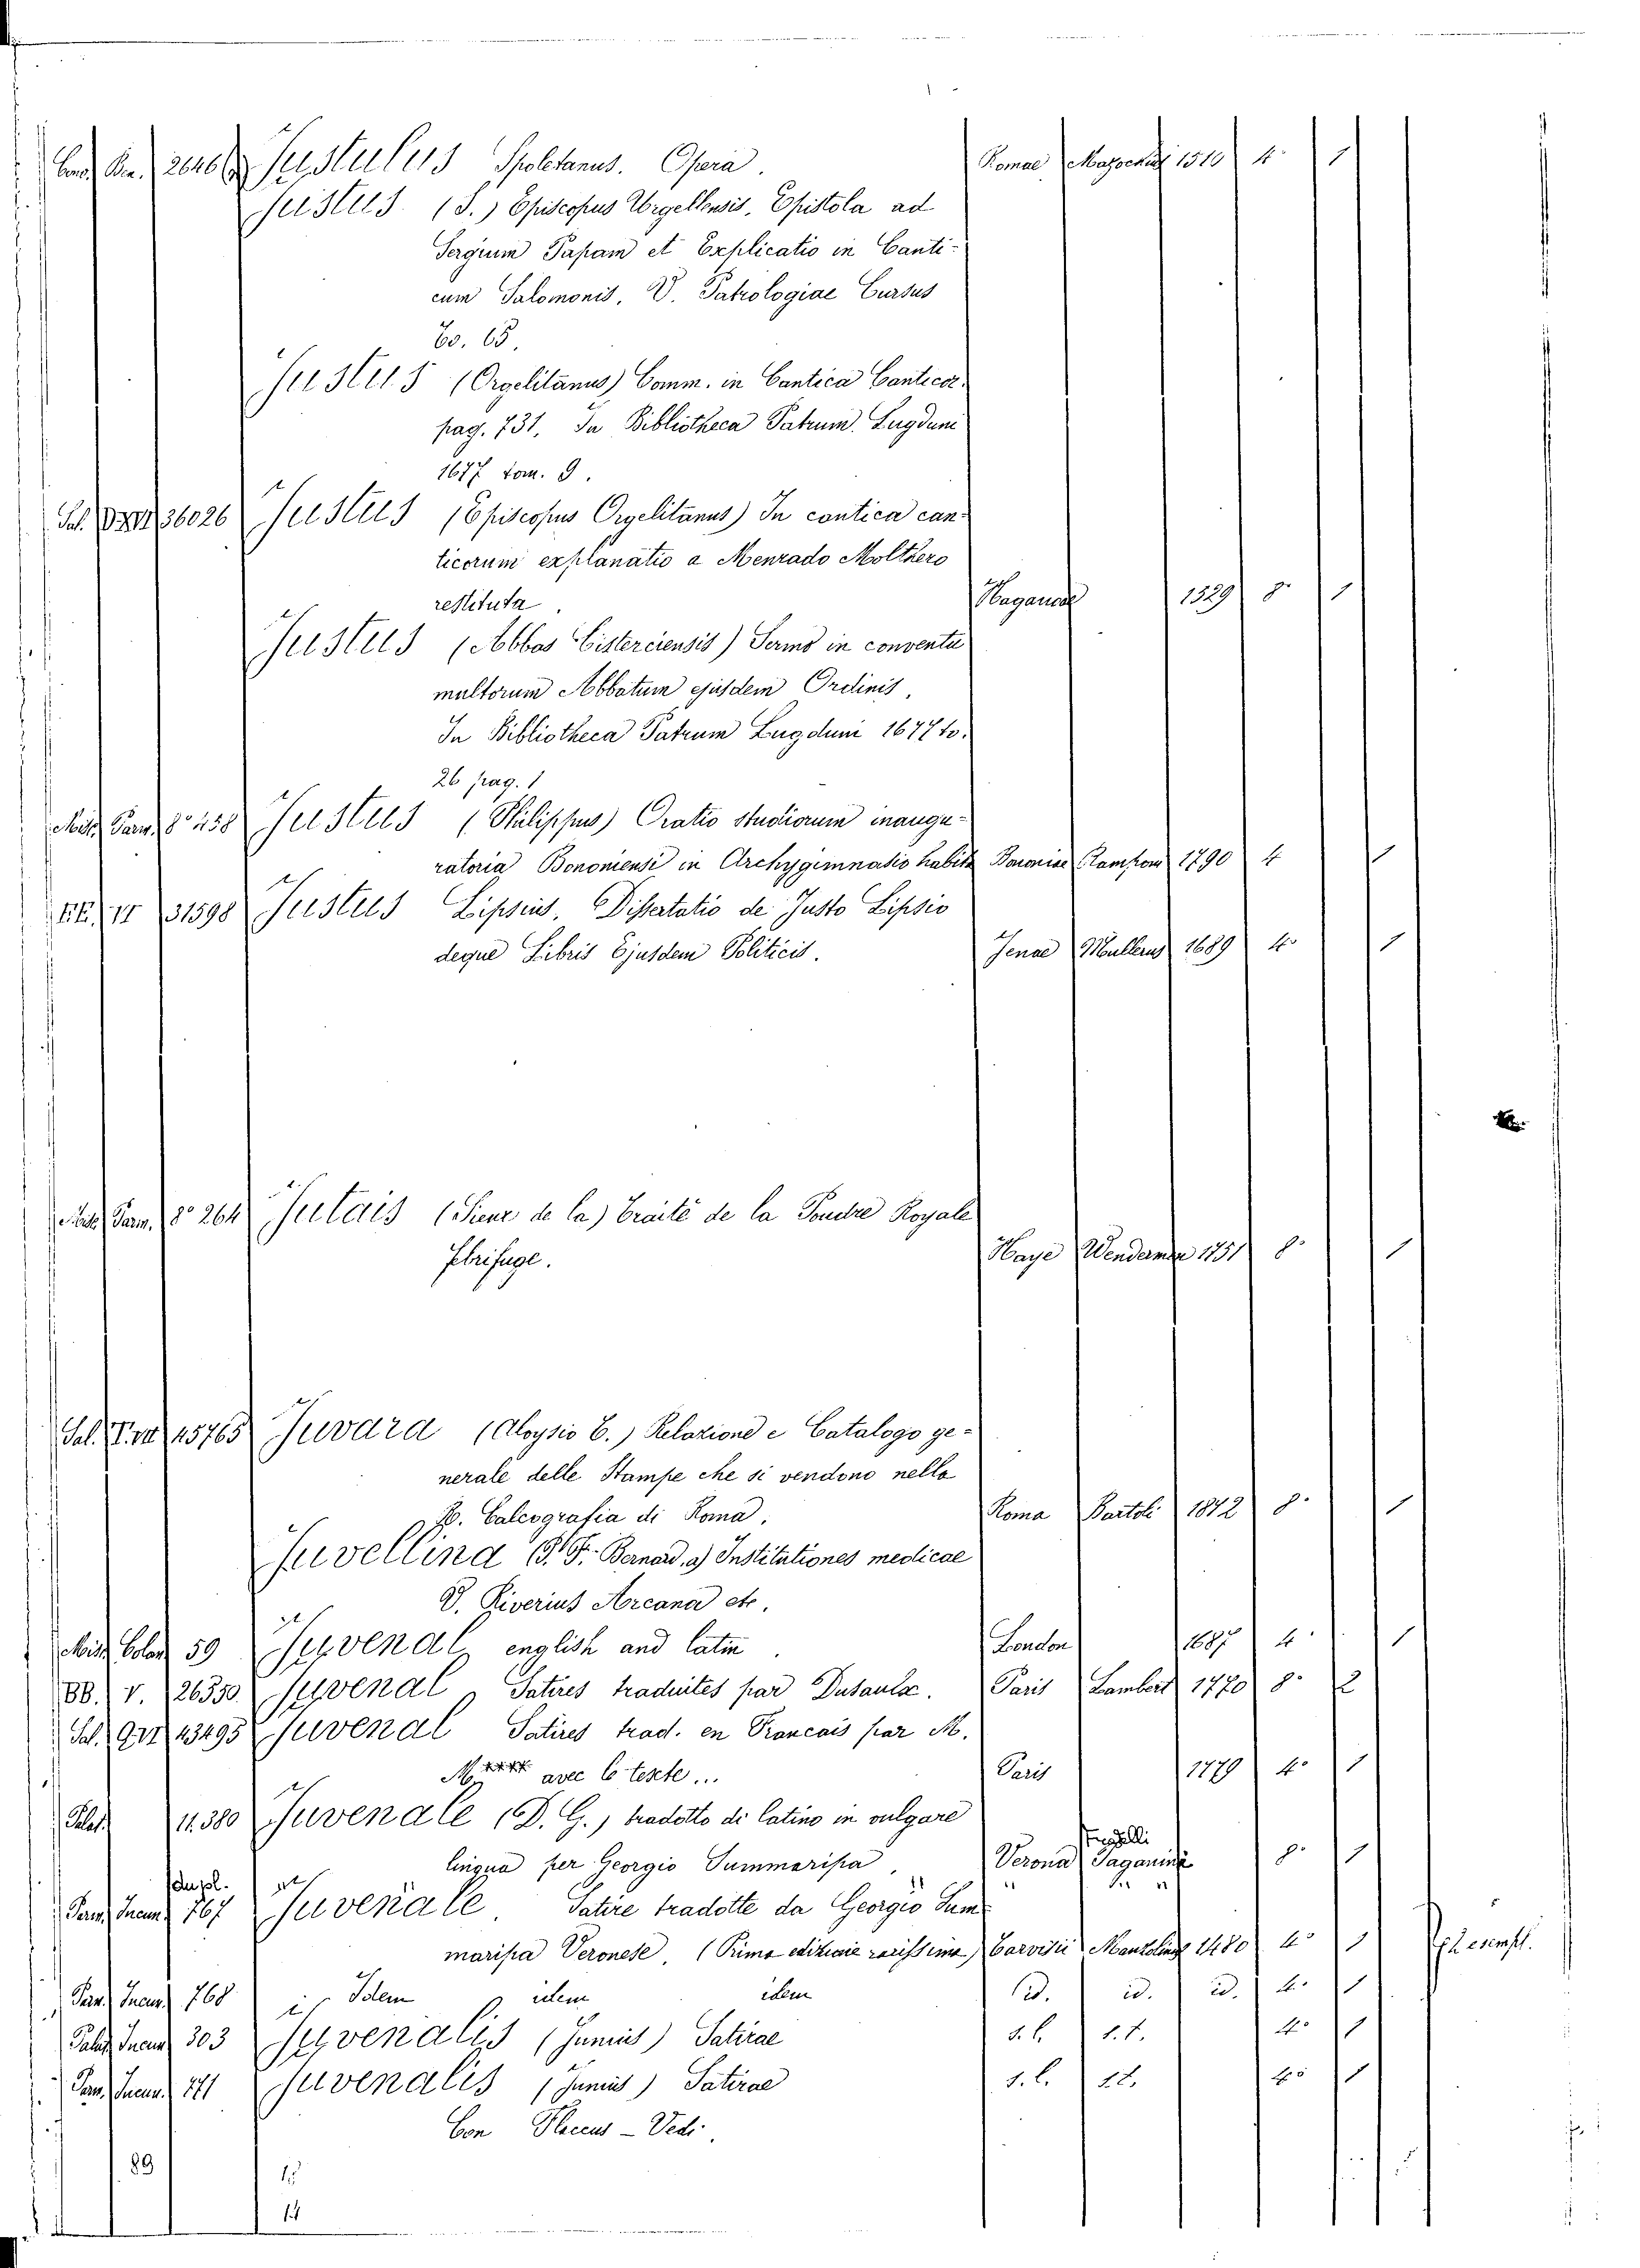 20466 Justulus Spoletanus. Opera. Romae Mazochius 1510 4° 1
Justus (S.) Episcopus Urgellensis, Epistola ad
Sergium Papam et Explicatio in Canti-
cum Salomonis, V. Patrologiae Cursus
To. 65.
Justus (Orgelitanus) Comm. in Cantica Canticor.
pag. 731. In Bibliotheca Patrum. Lugduni
1677 tom. 9.
Sal. 36026 Justus (Episcopus Orgelitanus) In contica can-
ticorum explanatio a Menrado Molthero
restituta. Haganoae 1529 8° 1
Justus (Abbas Cisterciensis) Sermo in conventu
multorum Abbatum ejusdem Ordinis,
In Bibliotheca Patrum Lugduni 1677 to.
26 pag. 1
Misc. Parm. 8° 438 Justus (Philippus) Oratio studiorum inaugu-
ratoria Bononiensi in Archygimnasio habita Bononiae Ramponi 1790 4 1
31598 Justus Lipsius, Dissertatio de Justo Lipsio
deque Libris Ejusdem Politicis. Jenae Mullerus 1689 4° 1
Misc. Parm. 8° 264 Jutais (Sieur de la) Traité de la Poudre Royale
Febrifuge. Haye 1751 8° 1
Sal. 45765 Juvara (Aloysio C.) Relazione e Catalogo ge-
nerale delle Stampe che si vendono nella
R. Calcografia di Roma. Roma Bartoli 1842 8° 1
Juvellina (P. F. Bernard, a) Institutiones medicae
V. Riverius Arcana etc.
Misc. Color. 59 Juvenal english and latin. London 1687 4° 1
BB. V. 26350. Juvenal Satires traduites par Dusaulx. Paris Lambert 1770 8° 2
Sal. 43495 Juvenal Satires trad. en Francais par M.
M.**** avec le texte... Paris 1779 4° 1
Palat. 11.380 Juvenale (D. G.) tradotto di latino in vulgare
lingua per Georgio Summaripa, Verona Paganini 8° 1
dupl.
Parm. Incun. 767 Juvenale. Satire tradotte da Georgio Sum-
maripa Veronese, (Prima edizione rarissima) Tarvisii Manzolino 1480 4° 1
Parm. Incun. 768 Idem idem idem id. id. id. 4° 1
Palat. Incun. 303 Juvenalis (Junius) Satirae s. l. s. t. 4° 1
Parm. Incun. 171 Juvenalis (Junius) Satirae s. l. s. t. 4° 1
Con Flaccus - Vedi.
89 15
14